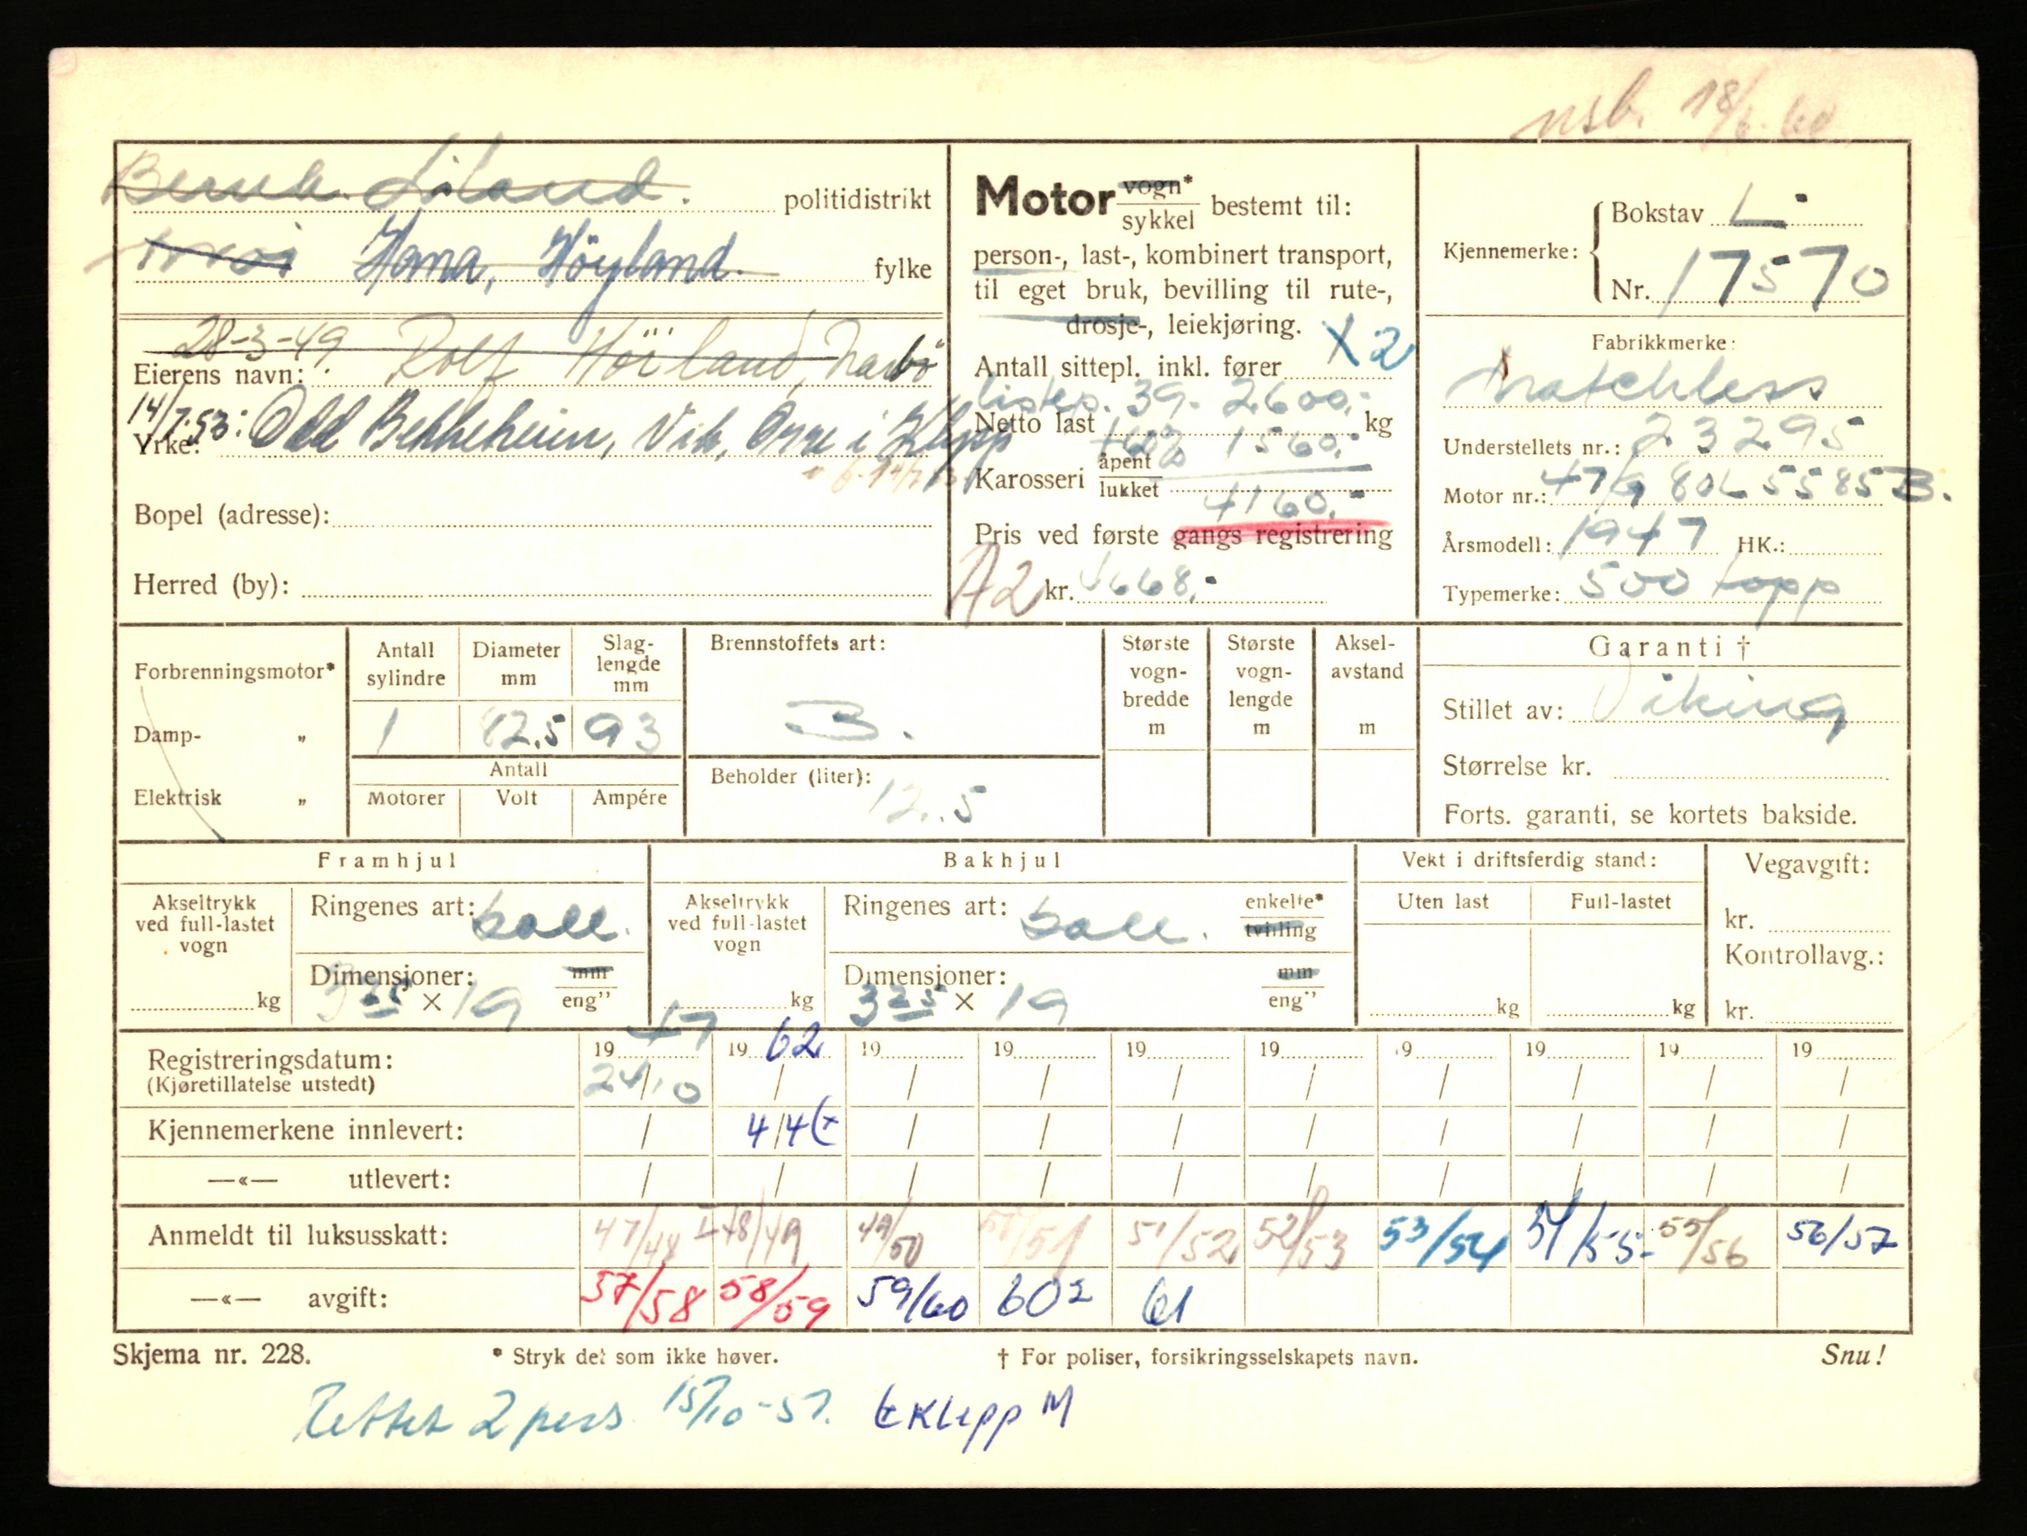 nsb. 18/6-60
Liland. politidistrikt
Hana, Høyland. fylke
28-3-49 Rolf Höiland, Nærbö
Eierens navn:
14/7.53: Odd Bekkeheien, Vik, Orre i Klepp
Yrke:
Bopel (adresse):
Herred (by):
Motor vogn*
sykkel bestemt til:
person-, last-, kombinert transport,
til eget bruk, bevilling til rute-,
drosje-, leiekjøring.
Antall sittepl. inkl. fører X2
listep. 39. 2600.-
Netto last kg
+60% 1560.-
Karosseri åpent
lukket
4160.-
Pris ved første gangs registrering
A2 kr. 4668.-
Kjennemerke:
Bokstav L-
Nr. 17570
Fabrikkmerke:
Matchless
Understellets nr.: 23295
Motor nr.: 47/G 80L 5585 B.
Årsmodell: 1947 HK.:
Typemerke: 500 topp
Forbrenningsmotor*
Damp- „
Elektrisk „
Antall sylindre
1
Diameter mm
82.5
Slag-
lengde
mm
93
Antall
Motorer Volt Ampére
Brennstoffets art:
B.
Beholder (liter):
12.5
Største
vogn-
bredde
m
Største
vogn-
lengde
m
Aksel-
avstand
m
Garanti †
Stillet av: Viking
Størrelse kr.
Forts. garanti, se kortets bakside.
Framhjul
Akseltrykk
ved full-lastet
vogn
kg
Ringenes art: ball.
Dimensjoner: mm
3.25 × 19 eng"
Bakhjul
Akseltrykk
ved full-lastet
vogn
kg
Ringenes art: ball. enkelte*
tvilling
Dimensjoner: mm
3.25 × 19 eng"
Vekt i driftsferdig stand:
Uten last Full-lastet
kg kg
Vegavgift:
kr.
Kontrollavg.:
kr.
Registreringsdatum: 19 47 19 62 19 19 19 19 19 19 19 19
(Kjøretillatelse utstedt) 24/10 / / / / / / / / /
Kjennemerkene innlevert: / 4/4 / / / / / / / /
—«— utlevert: / / / / / / / / / /
Anmeldt til luksusskatt: 47/48 48/49 49/50 50/51 51/52 52/53 53/54 54/55- 55/56 56/57
—«— avgift: 57/58 58/59 59/60 602 61
Skjema nr. 228. * Stryk det som ikke høver. † For poliser, forsikringsselskapets navn. Snu!
2 pers 15/10-57. Klepp M